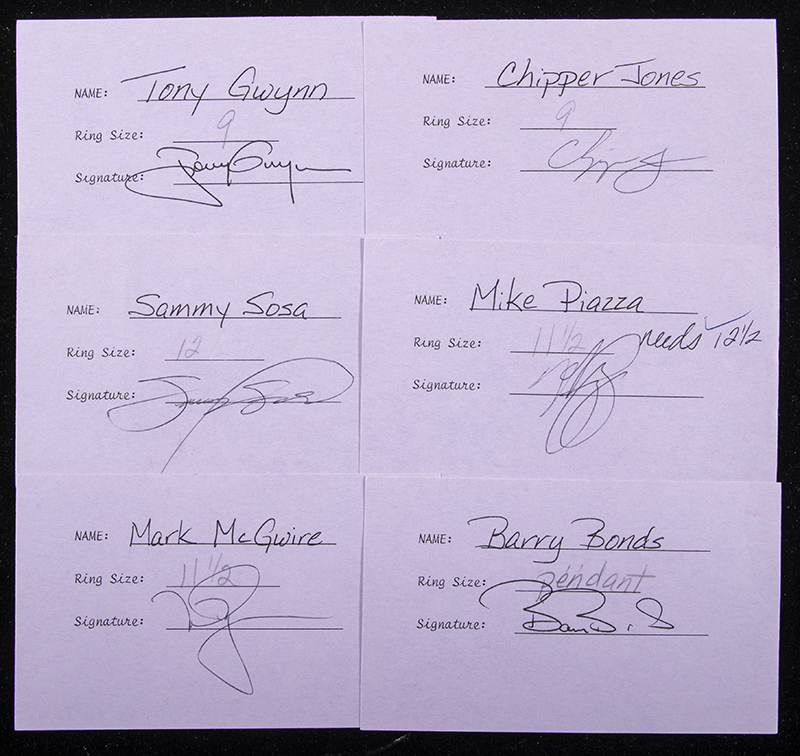 NAME: Tony Gwynn
Ring Size: 9
Signature: Tony Gwynn
NAME: Chipper Jones
Ring Size: 9
Signature: Chipper J
NAME: Sammy Sosa
Ring Size: 12
Signature: Sammy Sosa
NAME: Mike Piazza
Ring Size: 11 1/2 needs 12 1/2
Signature:
NAME: Mark McGwire
Ring Size: 11 1/2
Signature:
NAME: Barry Bonds
Ring Size: pendant
Signature: Barry B